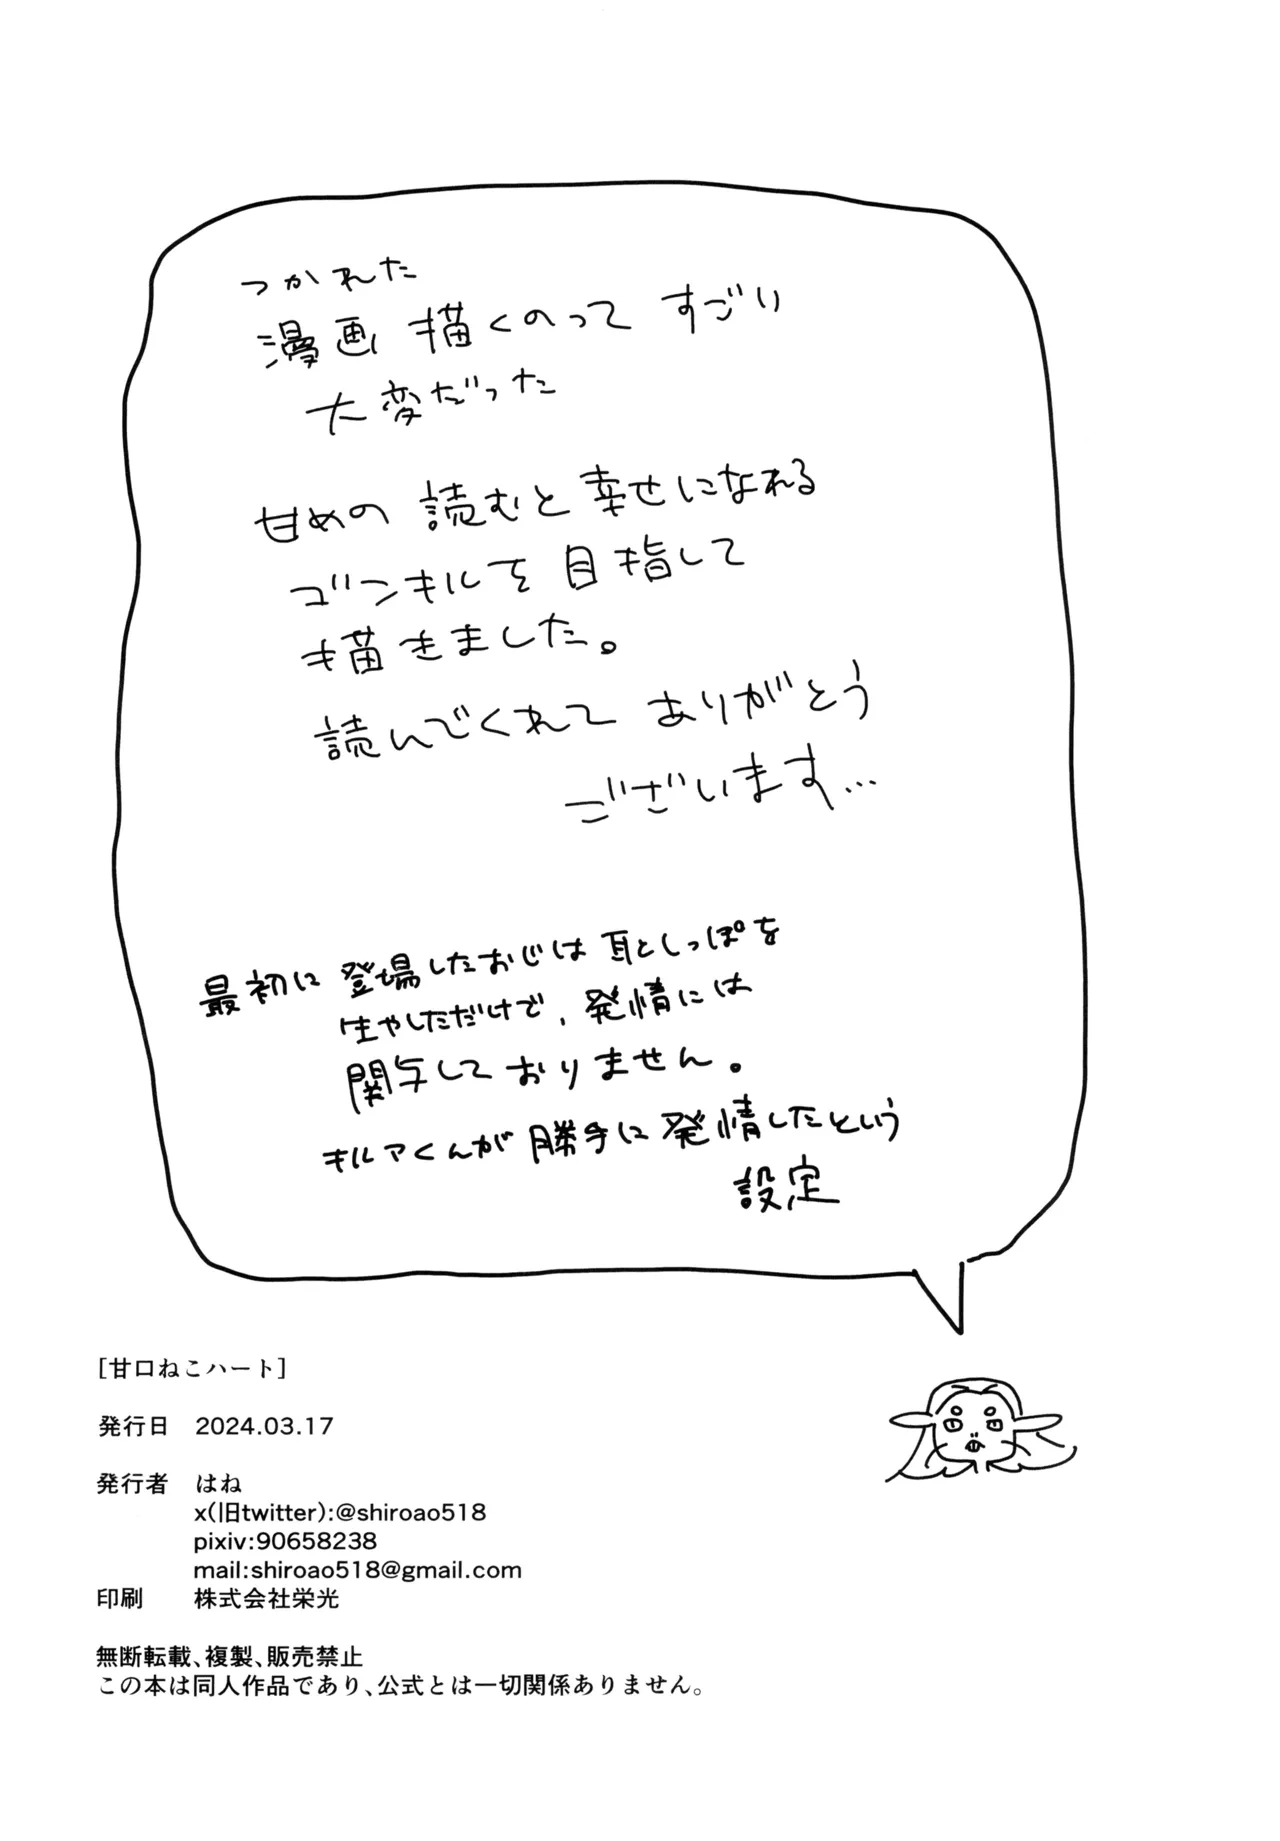 つかれた
漫画描くのってすごい
大変だった
甘めの読むと幸せになれる
ゴンキルを目指して
描きました。
読んでくれてありがとう
ございます…
最初に登場したおじは耳としっぽを
生やしただけで、発情には
関与しておりません。
キルアくんが勝手に発情したという
設定
[甘口ねこハート]
発行日 2024.03.17
発行者 はね
x(旧twitter):@shiroao518
pixiv:90658238
mail:shiroao518@gmail.com
印刷 株式会社栄光
無断転載、複製、販売禁止
この本は同人作品であり、公式とは一切関係ありません。